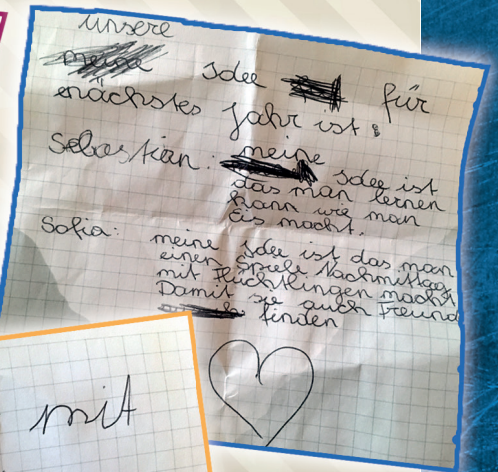 unsere
Idee für
nächstes Jahr ist:
Sebastian: meine Idee ist
das man lernen
kann wie man
Eis macht.
Sofia: meine Idee ist das man
einen Spiele Nachmittag
mit Flüchtlingen macht
Damit sie auch Freund
finden
mit